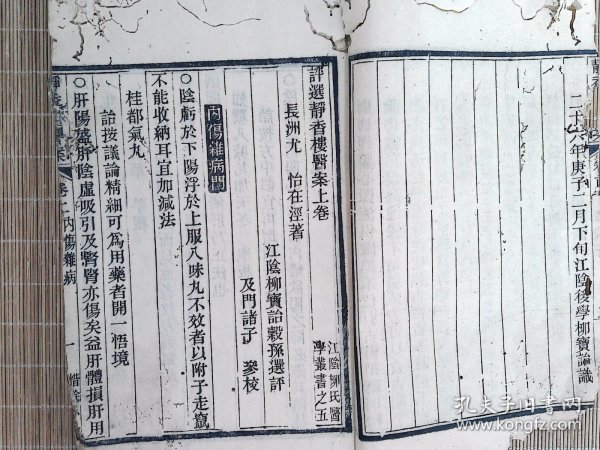 二十六年庚子二月下旬江陰後學柳寶詒識
江陰鄭氏醫
學叢書之五
評選靜香樓醫案上卷
長洲尤 怡在涇著
江陰柳寶詒穀孫選評
及門諸子 參校
內傷雜病門
○陰虧於下陽浮於上服八味丸不效者以附子走竄
不能收納耳宜加減法
桂都氣丸
詒按議論精細可為用藥者開一悟境
○肝陽盛肝陰虛吸引及腎腎亦傷矣益肝體損肝用
卷一內傷雜病
一
孔夫子旧书网
www.kongfz.com